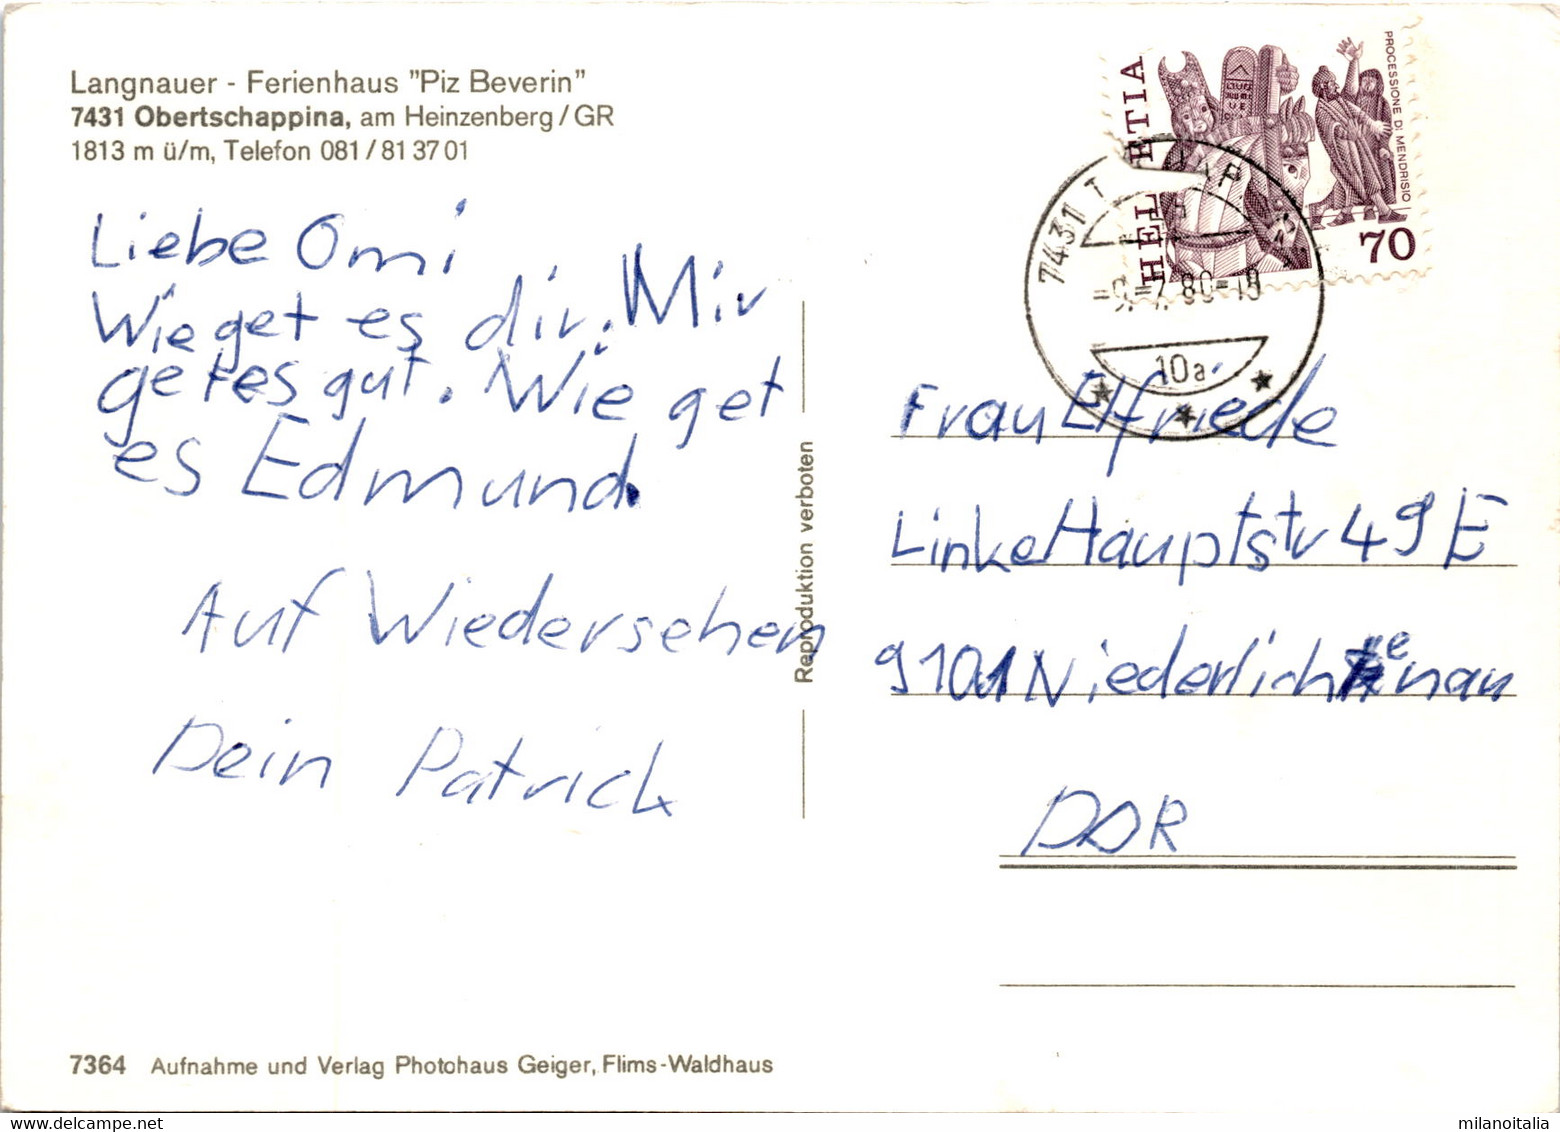 Langnauer - Ferienhaus "Piz Beverin"
7431 Obertschappina, am Heinzenberg/GR
1813 m ü/m, Telefon 081/81 37 01
Liebe Omi
Wie get es dir. Mir
get es gut. Wie get
es Edmund.
Auf Wiedersehen
Dein Patrick
Reproduktion verboten
7364 Aufnahme und Verlag Photohaus Geiger, Flims-Waldhaus
HELVETIA
PROCESSIONE DI MENDRISIO
70
7431
10a
Frau Elfriede
Linke Hauptstr 49 E
9101 Niederlichtenau
DDR
milanoitalia